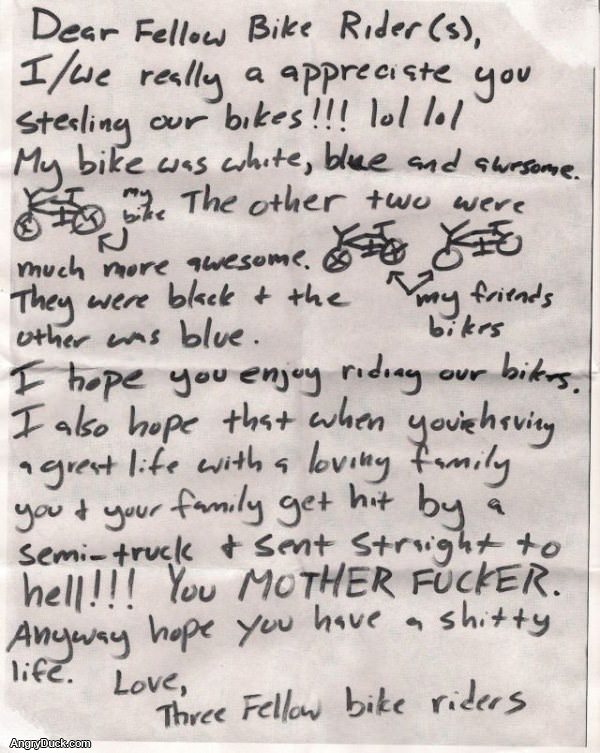 Dear Fellow Bike Rider(s),
I/we really a appreciate you
stealing our bikes!!! lol lol
My bike was white, blue and awesome.
my bike The other two were
much more awesome.
They were black + the my friends
other was blue. bikes
I hope you enjoy riding our bikes.
I also hope that when you're having
a great life with a loving family
you + your family get hit by a
semi-truck + sent straight to
hell!!! You MOTHER FUCKER.
Anyway hope you have a shitty
life. Love,
Three Fellow bike riders
AngryDuck.com